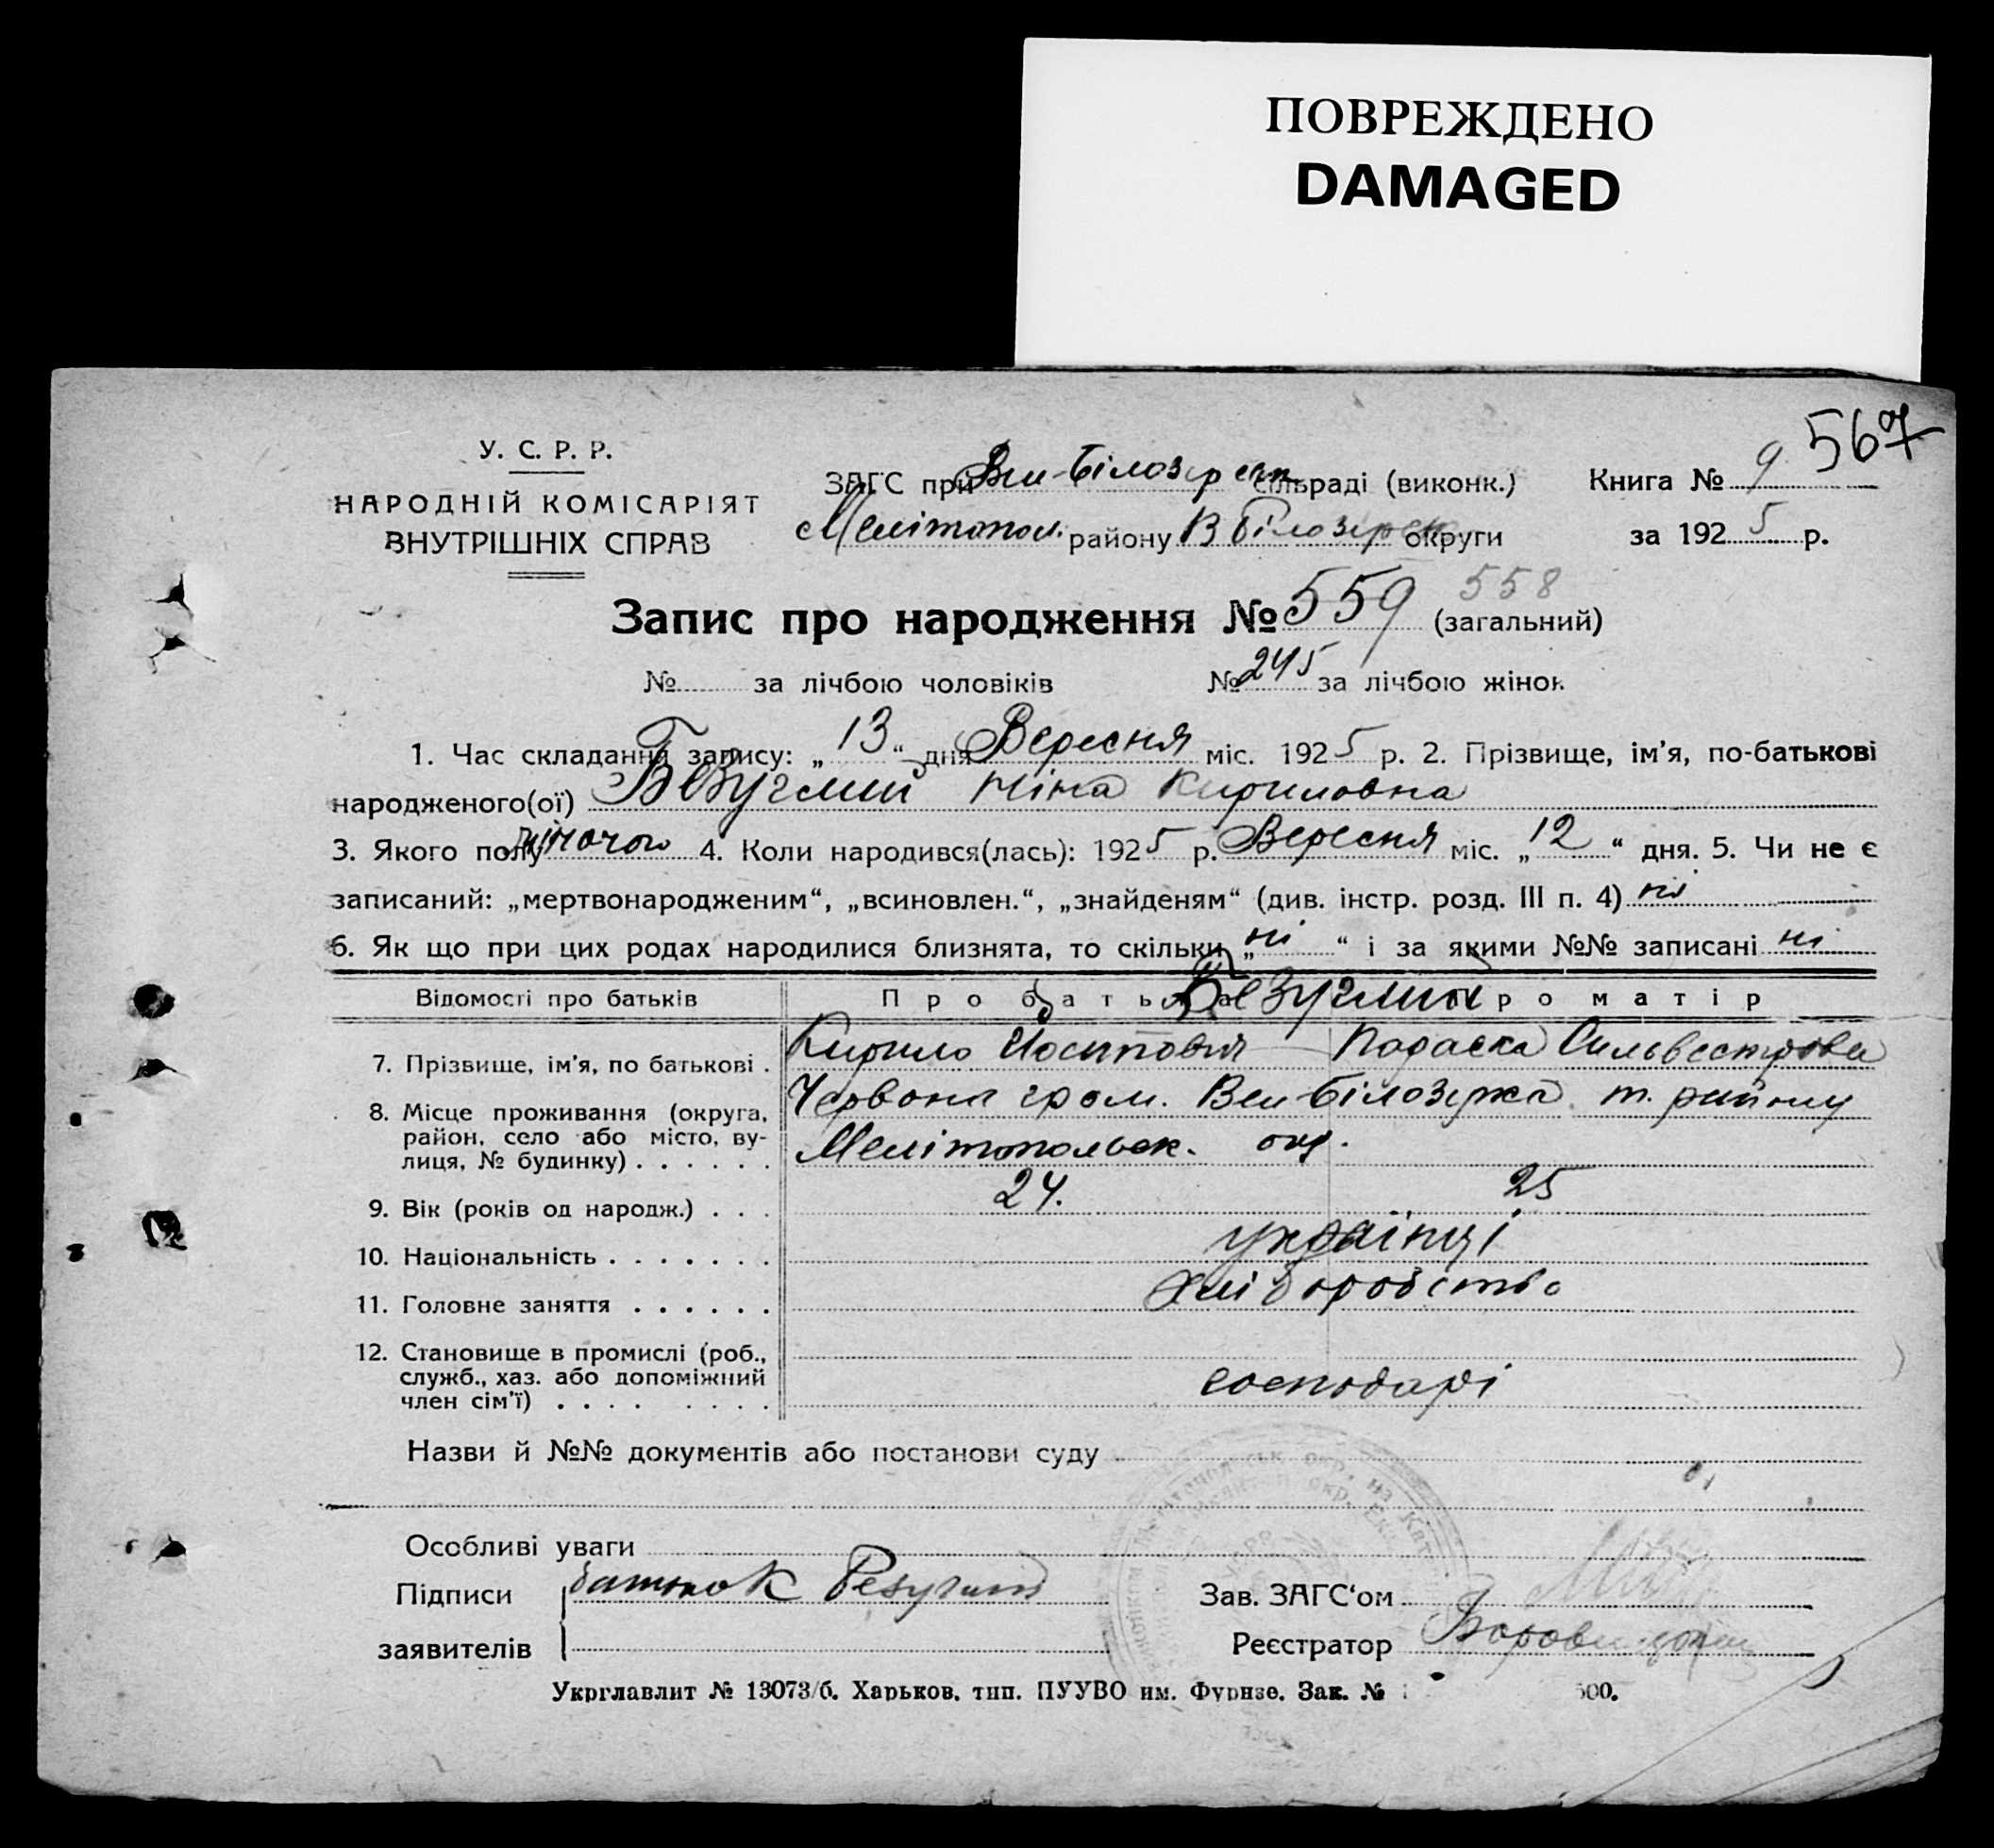 ПОВРЕЖДЕНО
DAMAGED
567
У. С. Р. Р.
НАРОДНІЙ КОМІСАРІЯТ
ВНУТРІШНІХ СПРАВ
ЗАГС при Вел-Білозерск сільраді (виконк.) Книга № 9
Мелітопол. району В Білозерск округи за 1925 р.
Запис про народження № 559 558 (загальний)
№ за лічбою чоловіків № 245 за лічбою жінок
1. Час складання запису: „13“ дня Вересня міс. 1925 р. 2. Прізвище, ім'я, по-батькові
народженого(ої) Безуглий Ніна Кириловна
3. Якого полу жіночого 4. Коли народився(лась): 1925 р. Вересня міс. „12“ дня. 5. Чи не є
записаний: „мертвонародженим“, „всиновлен.“, „знайденям“ (див. інстр. розд. III п. 4) ні
6. Як що при цих родах народилися близнята, то скільки „ні“ і за якими №№ записані ні
Відомості про батьків Про батька Про матір
Безуглий
7. Прізвище, ім'я, по батькові . Кирило Йосипович Параска Сильвестрова
8. Місце проживання (округа, Червона гром. Вел-Білозерка т. району
район, село або місто, ву-
лиця, № будинку) . . . . . . Мелітопольск. окр.
9. Вік (років од народж.) . . . 24. 25
10. Національність . . . . . . . українці
11. Головне заняття . . . . . . хліборобство
12. Становище в промислі (роб.,
служб., хаз. або допоміжний господарі
член сім'ї) . . . . . . . .
Назви й №№ документів або постанови суду
Особливі уваги
Підписи батько Безуглий Зав. ЗАГС‘ом
заявителів Реєстратор
Укрглавлит № 13073/б. Харьков. тип. ПУУВО им. Фрунзе. Зак. № 500.